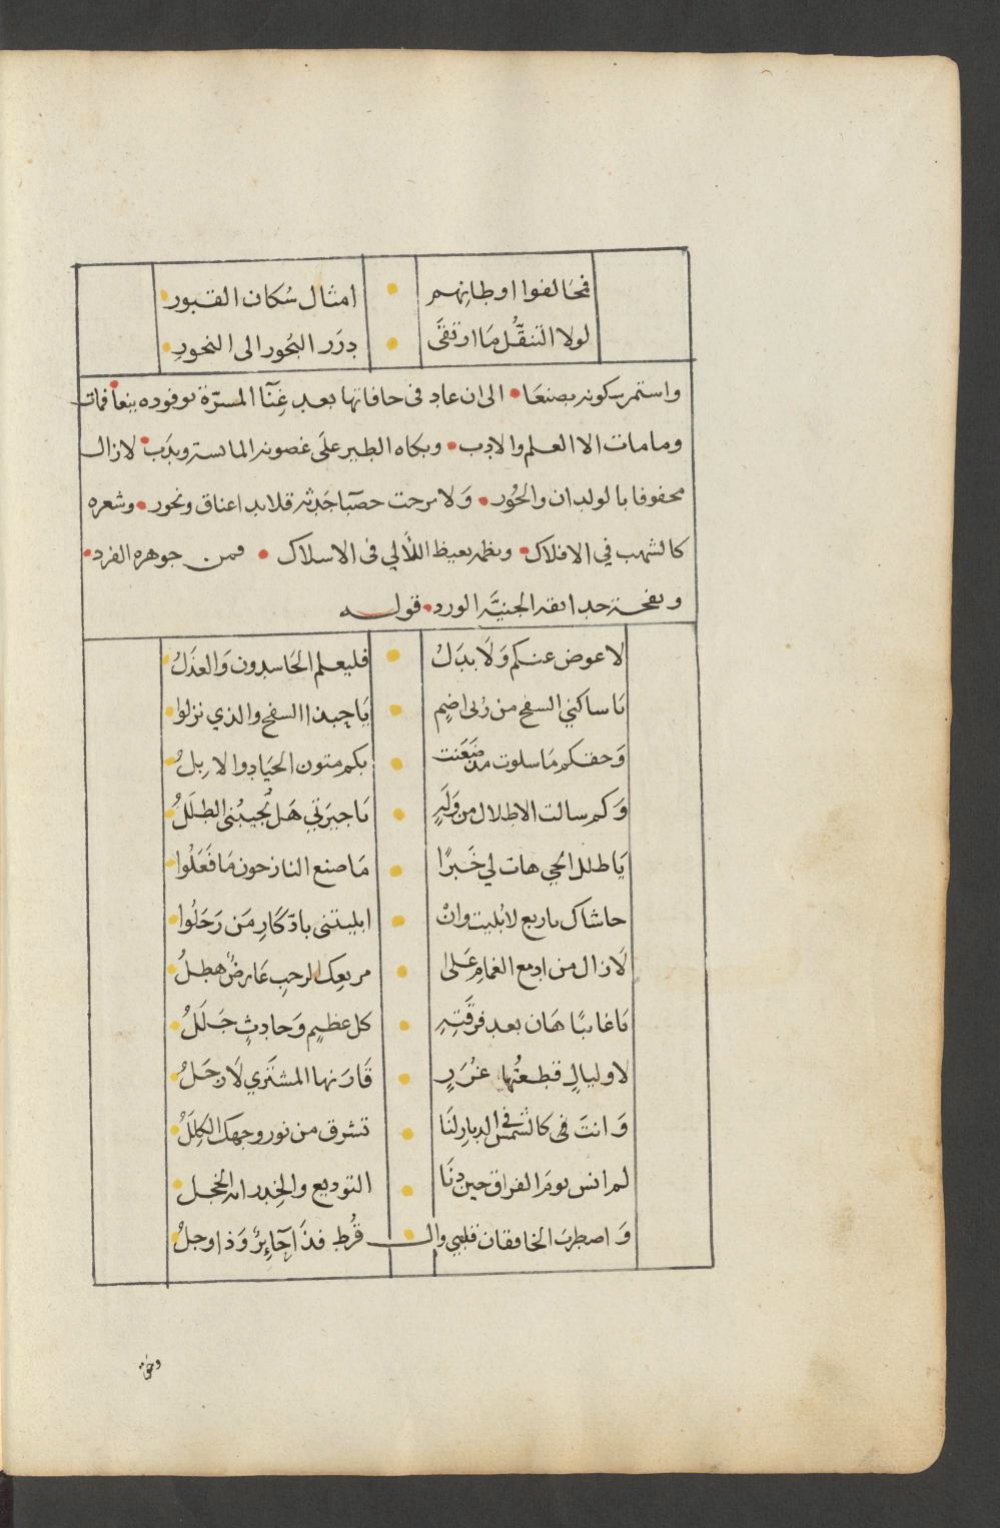 فمحالفوا اوطانهم • امثال سُكان القبور
لولا التنقُّل مَا ارتقَى • دِرَر البُحور الى النحورِ
واستمر سكونه بصنعَا • الى ان عاد فى حافاتها بعد غِنَآ المسرّة نوفوده ينعا • فمات
وما مات الا العلم والادب • وبكاه الطير علَى غصونه المائسة وندَب • لازال
محفوفا بالولدان والحُور • وَلا برحت حصبَآ جَدَثه قلايد اعناق ونحور • وشعره
كالشهب في الافلاك • ونظمه يغيظ اللآلي فى الاسلاك • فمن جوهره الفرد •
ونفحة حدائقه الجنيَّه الورد • قوله
لا عوض عنكم وَلَا بدَلُ • فليعلم الحَاسدون وَالعذَلُ
يَا ساكني السفح من رُبى اضِم • يَا حبذا السفح والذي نزلوا
وَحقكم مَا سلوت مذ ضَعَنت • بكم متون الجيَاد والابلُ
وَكم سالت الاطلال من وَلَهٍ • يَا جيرَتي هَل يُجيبُنى الطلَلُ
يَا طلل الحي هات لي خَبرًا • مَا صنع النازحون مَا فَعَلُوا
حاشاك ياربع لا بُليت وانْ • ابليتنى بادّكَارِ مَن رَحَلُوا
لَا زال من ادمع الغمامِ عَلى • مربعِك الرحبِ عَارضٌ هطِلُ
يَا غائبًا هَان بعد فرقَتِهِ • كل عظيمٍ وَحادثٍ جَلَلُ
لا وليالٍ قطعتُها غُرَرٍ • قَارَنها المشتَري لَا زحَلُ
وَانتَ فى كالشمس فى الديارِ لنَا • تشرق من نور وجهك الكِلَلُ
لم انس يومَ الفراق حين دنَا • التوديع والخِدر انه الخجل
وَاضطربَ الخافقان قلبي والـ • قُرط فذَا حَآئِرٌ وَذا وجلُ